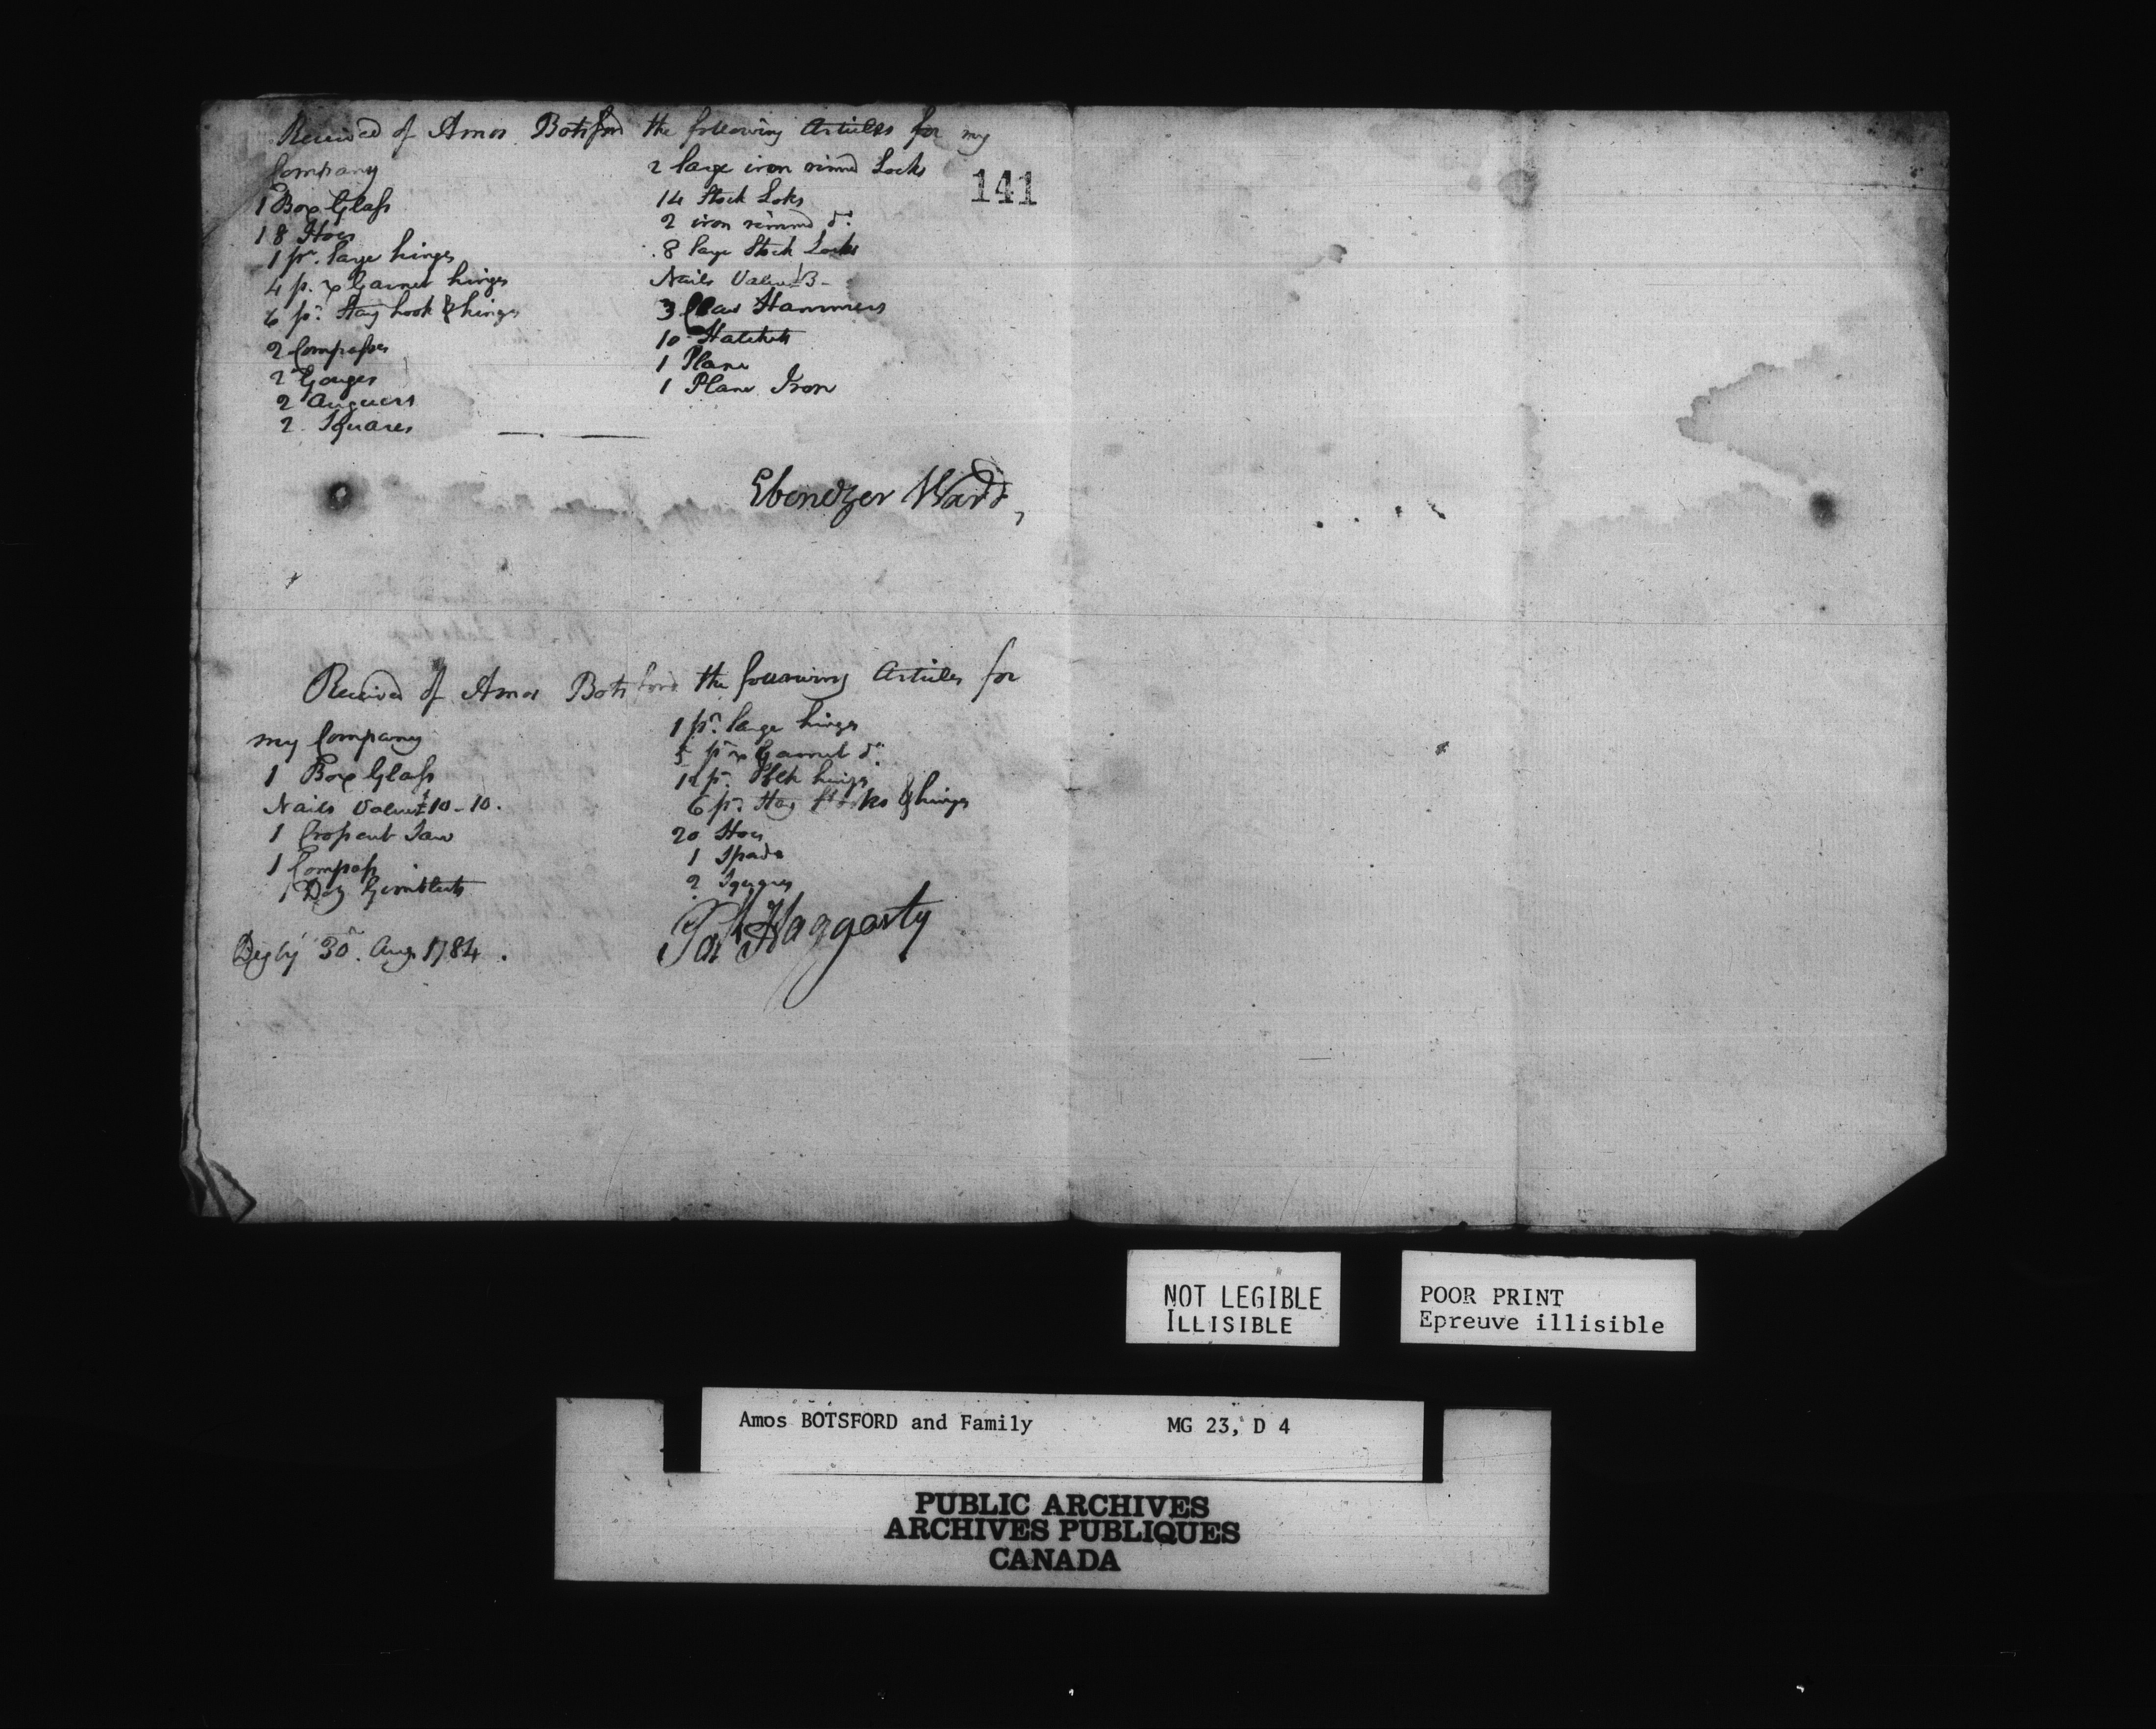 Received of Amos Botsford the following Articles for my
Company
1 Box Glass
18 Hoes
1 pr. large hinges
4 pr. x Garnet hinges
6 pr. Stay hook & hinges
2 Compasses
2 Gouges
2 Auguers
2 Squares
2 large iron rimd Locks
14 Stock Loks
2 iron rimmd do.
8 large Stock Locks
Nails Value £3 -
3 Claw Hammers
10 Hatchets
1 Plane
1 Plane Iron
141
Ebenezer Ward,
Received of Amos Botsford the following Articles for
my Company
1 Box Glass
Nails Value £10 - 10.
1 Crosscut Saw
1 Compass
1 Doz Gimblets
1 pr. large hinges
5 pr x Garnet do.
12 pr. hinges
6 pr. Stay Hooks & hinges
20 Hoes
1 Spade
2 Squares
Digby 30. Aug. 1784.
Pat Haggarty
NOT LEGIBLE
ILLISIBLE
POOR PRINT
Epreuve illisible
Amos BOTSFORD and Family MG 23, D 4
PUBLIC ARCHIVES
ARCHIVES PUBLIQUES
CANADA